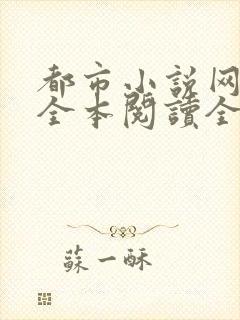 都市小说网
全本閱讀全
蘇一酥